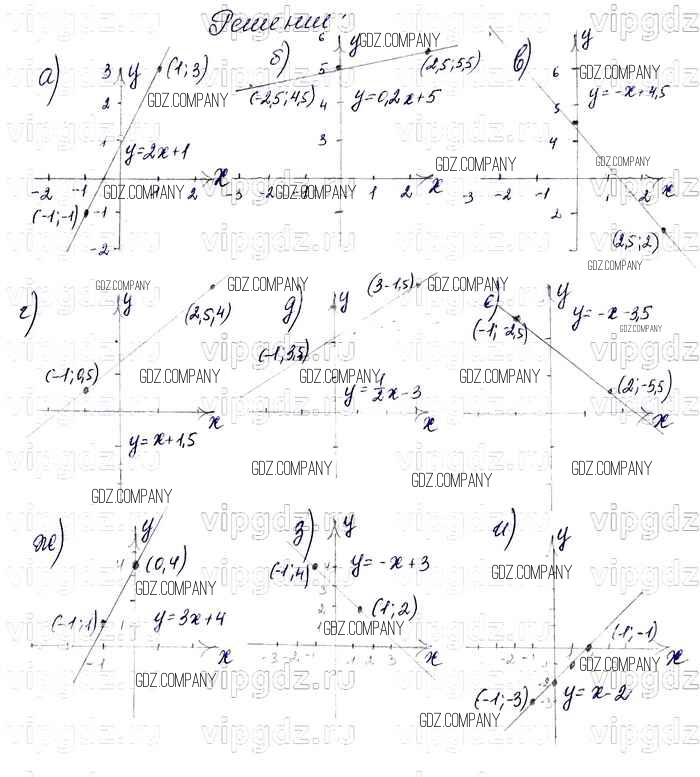 Решение:
а) y
3
2
1
(1; 3)
y=2x+1
x
-2 -1 1 2
(-1; -1)
-1
-2
б) y
6
5
4
3
(-2,5; 4,5)
(2,5; 5,5)
y=0,2x+5
-3 -2 1 2 x
в) y
6
5
4
2
y=-x+4,5
3 -2 -1 1 -2 x
(2,5; 2)
г) y
(2,5, 4)
(-1; 0,5)
x
y=x+1,5
д) y
(3-1,5)
(-1; 3,5)
y=1/2x-3
x
е) y
y=-x-3,5
(-1; -2,5)
(2; -5,5)
x
ж) y
4
(0,4)
(-1; 1)
1
y=3x+4
-1
x
з) y
4
(-1; 4)
y=-x+3
2
(1; 2)
1
-3 -2 -1 1 2 3
x
и) y
(1; -1)
-2 -1
x
(-1; -3)
y=x-2
GDZ.COMPANY
vipgdz.ru